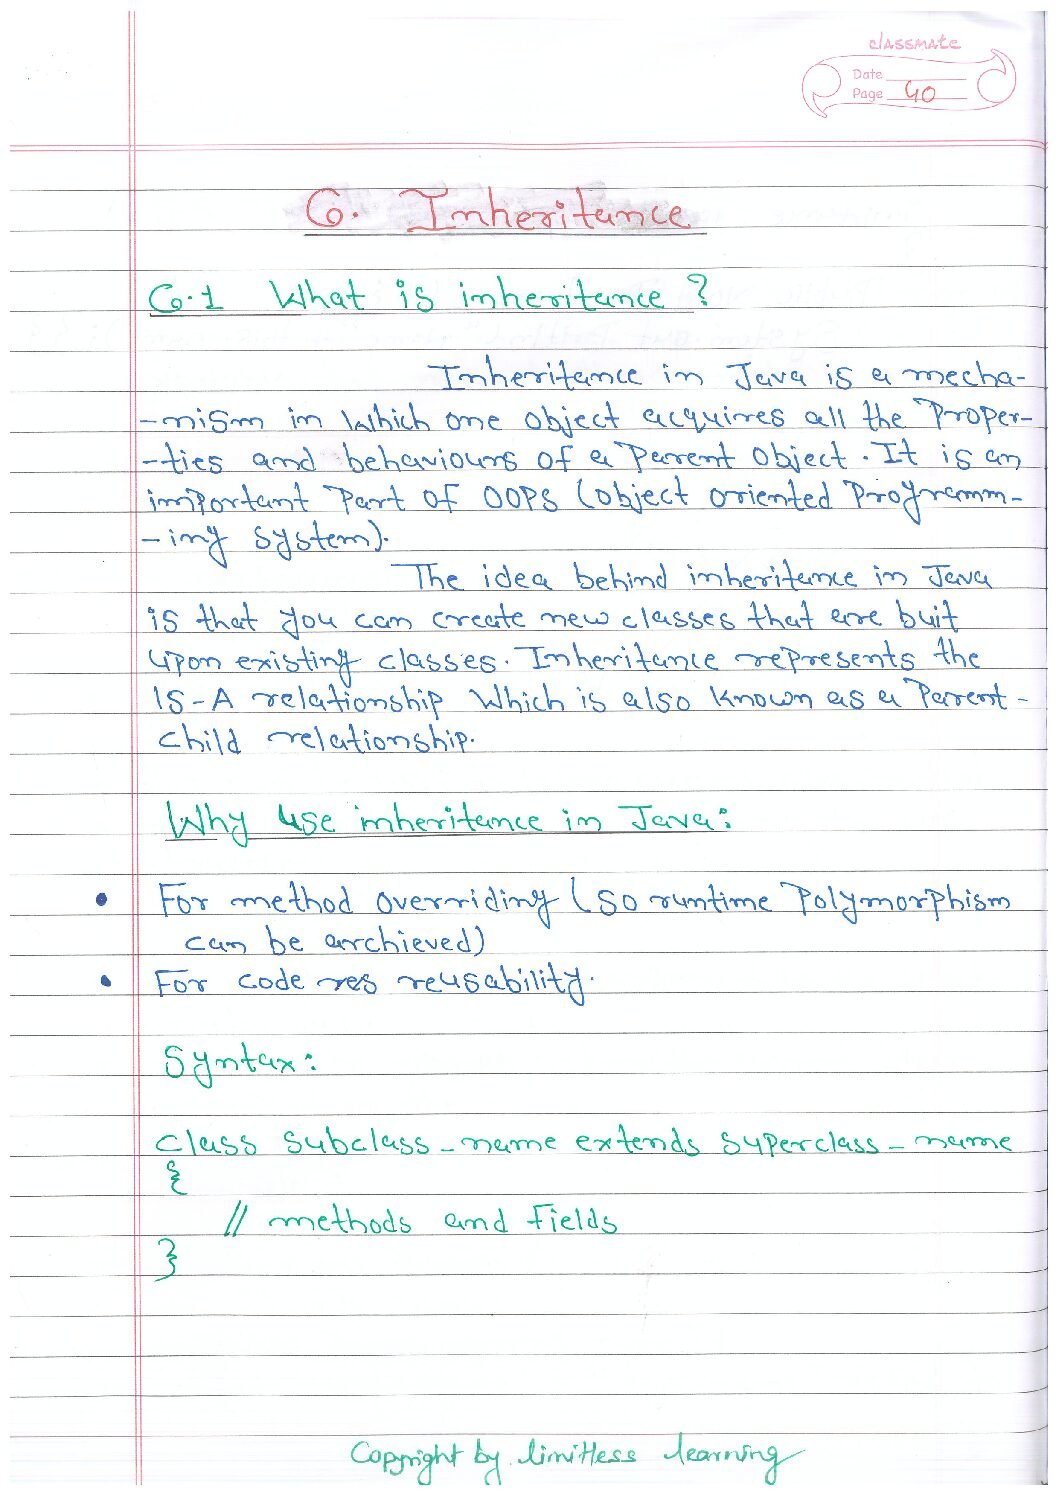 classmate
Date
Page 40
6. Inheritance
6.1 What is inheritance ?
Inheritance in Java is a mecha-
-nism in which one object acquires all the Proper-
-ties and behaviours of a Parent object. It is an
important Part of OOPS (object oriented Programm-
-ing system).
The idea behind inheritance in Java
is that you can create new classes that are buit
upon existing classes. Inheritance represents the
IS-A relationship Which is also known as a Parent-
child relationship.
Why use inheritance in Java:
• For method overriding (so runtime Polymorphism
can be archieved)
• For code res reusability.
Syntax:
class Subclass_name extends superclass_name
{
// methods and fields
}
Copyright by limitless learning